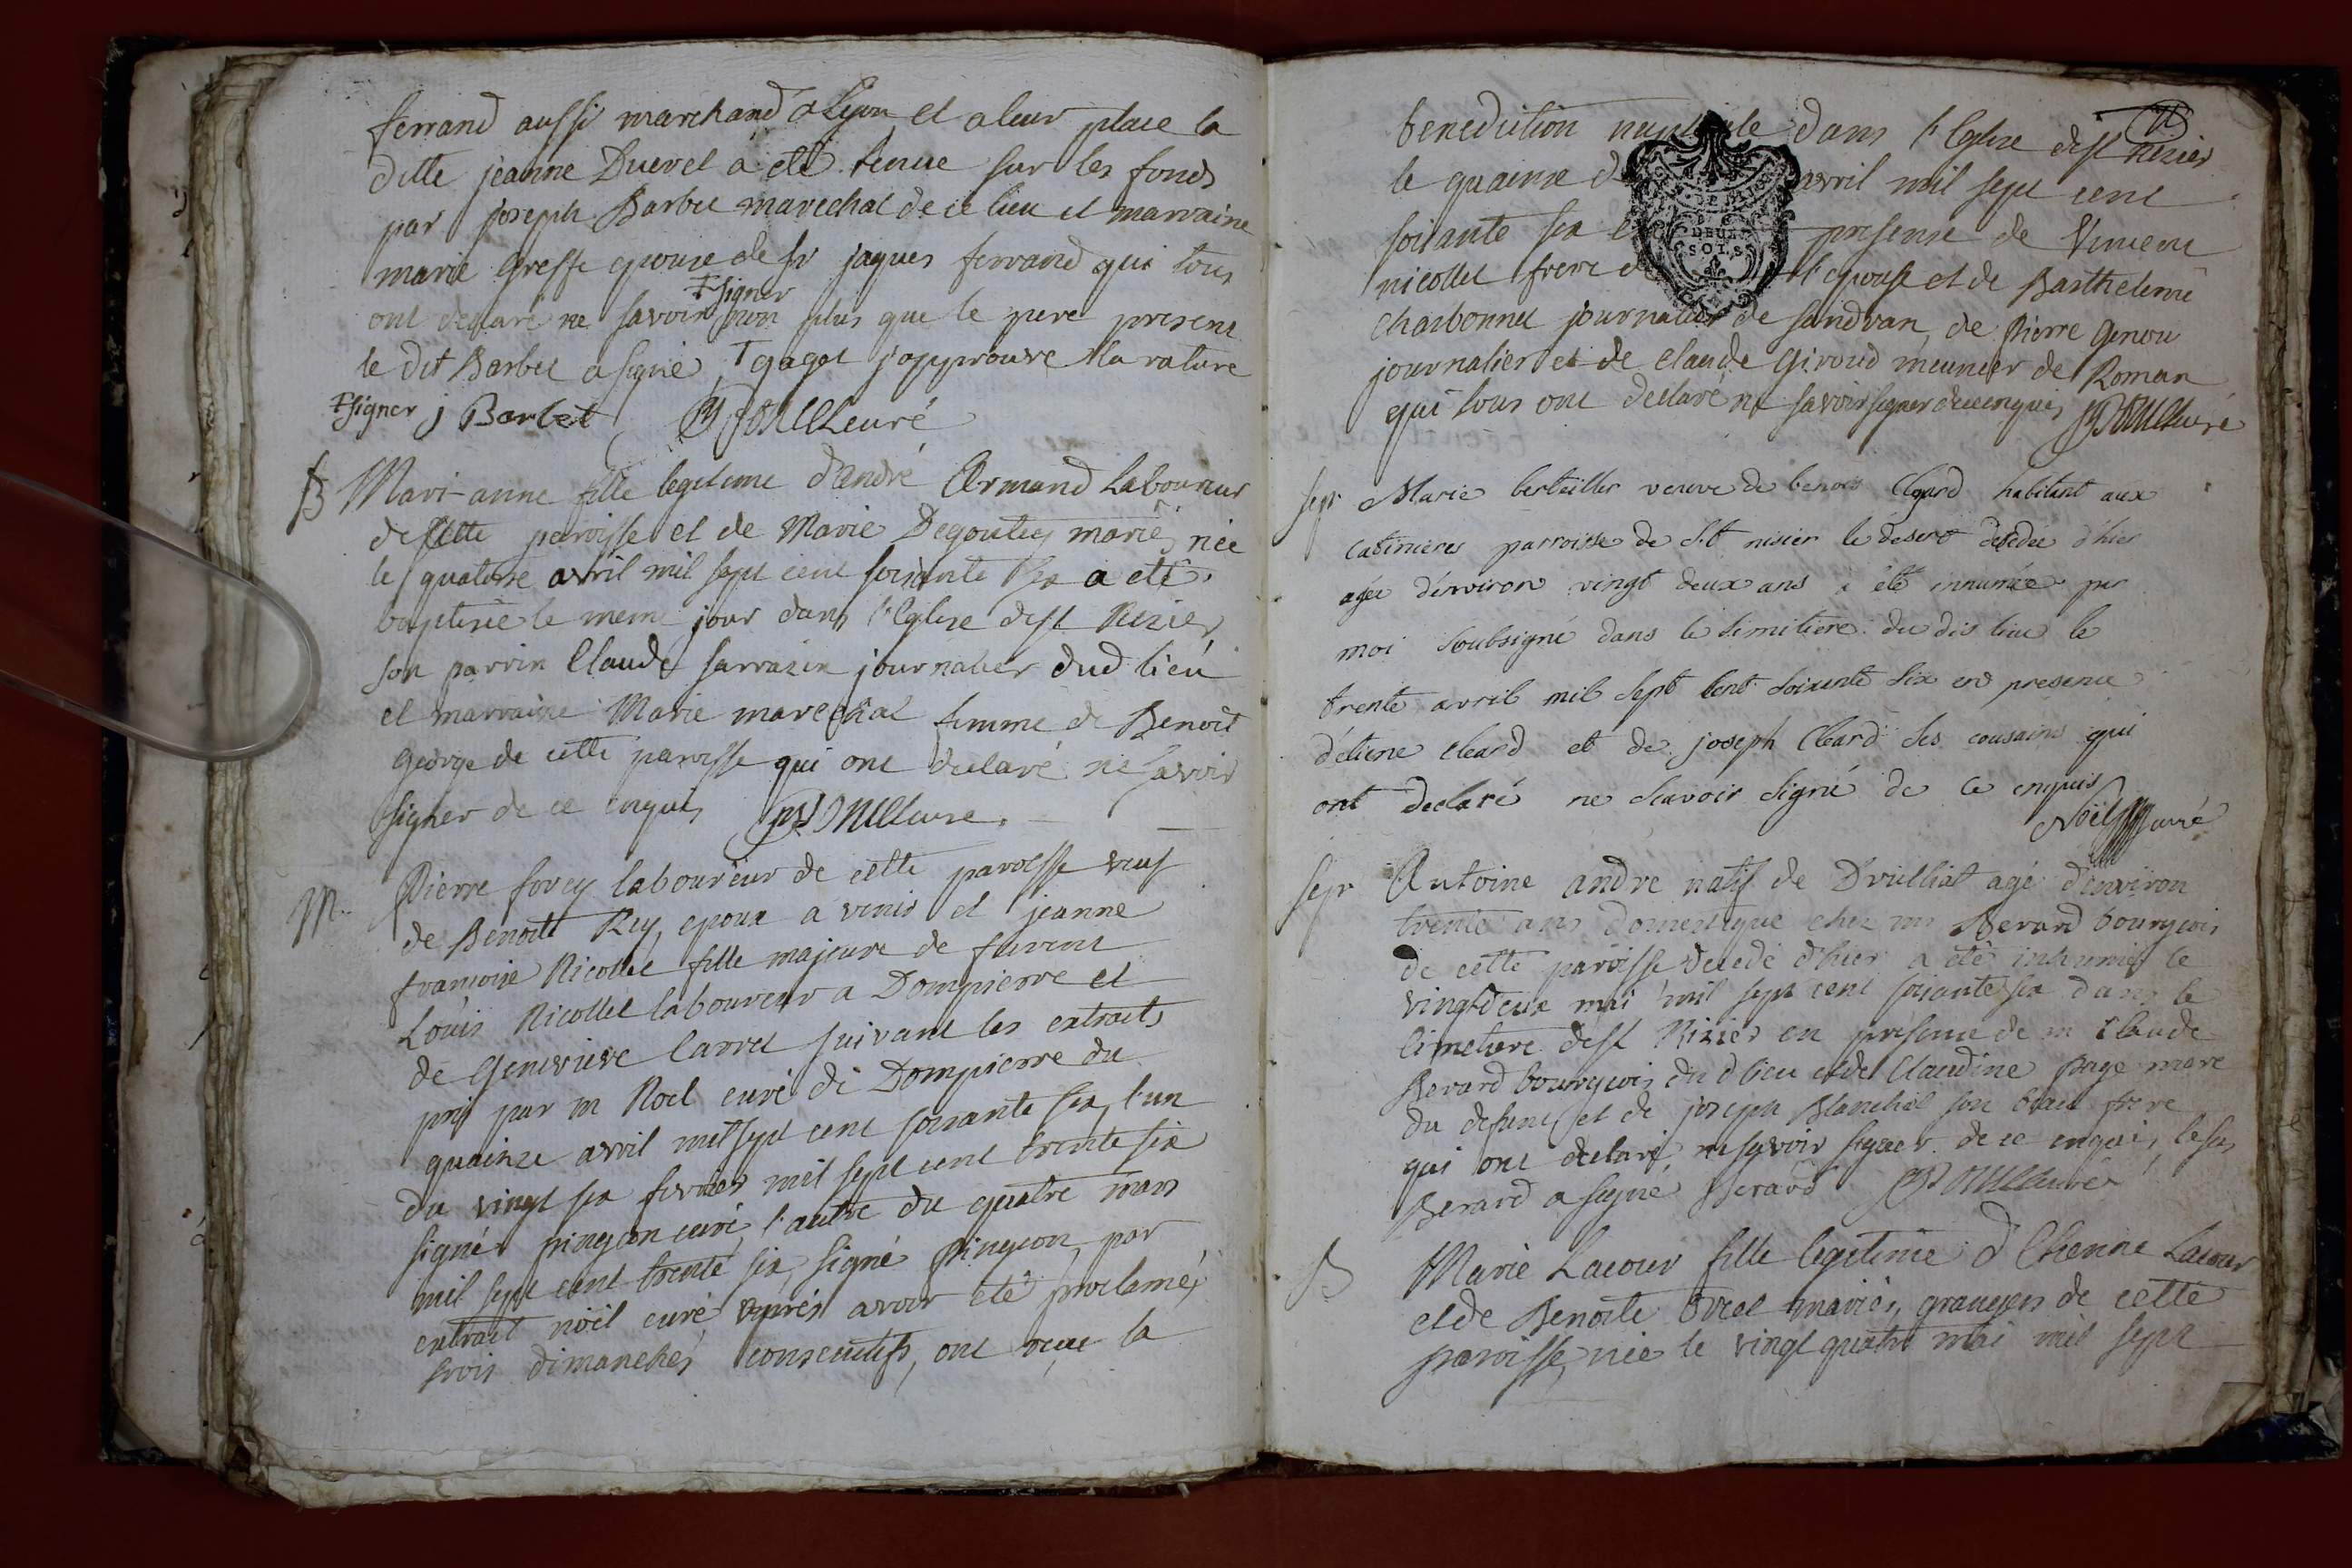 ferrand aussi marchand a Lyon et a leur place la
ditte jeanne Duevel a eté tenue sur les fonds
par joseph Barbet marechal de ce lieu et marraine
marie Gresse epouse de sr jaques ferrand qui tous
‡signer
ont declaré ne savoir non plus que le pere present
le dit Barbet a signé, T gagot j'approuve la rature
‡signer j Barbet curé
B Mari-anne fille legitime d'André Armand Laboureur
de cette paroisse et de Marie Degoutes mariés née
le quatorse avril mil sept cent soixante six a eté
baptisée le meme jour dans l'Eglise de st Nisier
son parrin Claude sarrasin journalier dud lieu
et marraine Marie marechal femme de Benoît
George de cette paroisse qui ont declaré ne savoir
signer de ce enquis curé
M. Pierre forey laboureur de cette paroisse veuf
de Benoite Rey, epoux a venir et jeanne
francoise Nicollet fille majeure de furent
Loüis Nicollet laboureur a Dompierre et
de Genevieve Carret suivant les extraits
pris par m Noel curé de Dompierre du
quainze avril mil sept cent soixante six, l'un
du vingt six fevrier mil sept cent trente six
signé pingeon curé, l'autre du quatre mars
mil sept cent trente six, signé Pingeon, par
extrait noël curé aprés avoir eté proclamés
trois dimanches consecutifs, ont reçue la
benediction nuptiale dans l'Eglise de st nisier
le quainze avril mil sept cent
DEUX
SOLS
soixante six presence de Vincent
nicollet frere de l'epouse et de Barthelemi
Charbonnet journalier de sandran, de Pierre Genou
journalier et de Claude Giroud meunier de Roman
qui tous ont declaré ne savoir signer de ce enquis curé
Sepr Marie berteiller veuve de benois Cleard habitant aux
Catinieres parroisse de St nisier le desert décédée d'hier
agée d'environ vingt deux ans a été innumée par
moi Soubsigné dans le Simitiere du dis lieu le
trente avril mil Sept Cent Soixante Six en presence
d'étiene Cleard et de joseph Cleard Ses cousains qui
ont declaré ne Scavoir Signé de Ce enquis
Noël curé
Sepr Antoine andre natif de Druilliat agé d'environ
trente ans domestique chez mr Berard bourgeois
de cette paroisse decedé d'hier a été inhumé le
vingt deux mai mil sept cent soixante six dans le
Cimetiere de st Nisier en presence de m Claude
Berard bourgeois du d lieu et de Claudine page mere
du defunt et de joseph Blanchet son beau frere
qui ont declaré ne savoir signer de ce enquis, le sr
Berard a signé Berard curé
B Marie Lacour fille legitime d'Etienne Lacour
et de Benoite Burel mariés, grangers de cette
paroisse, née le vingt quatre mai mil sept